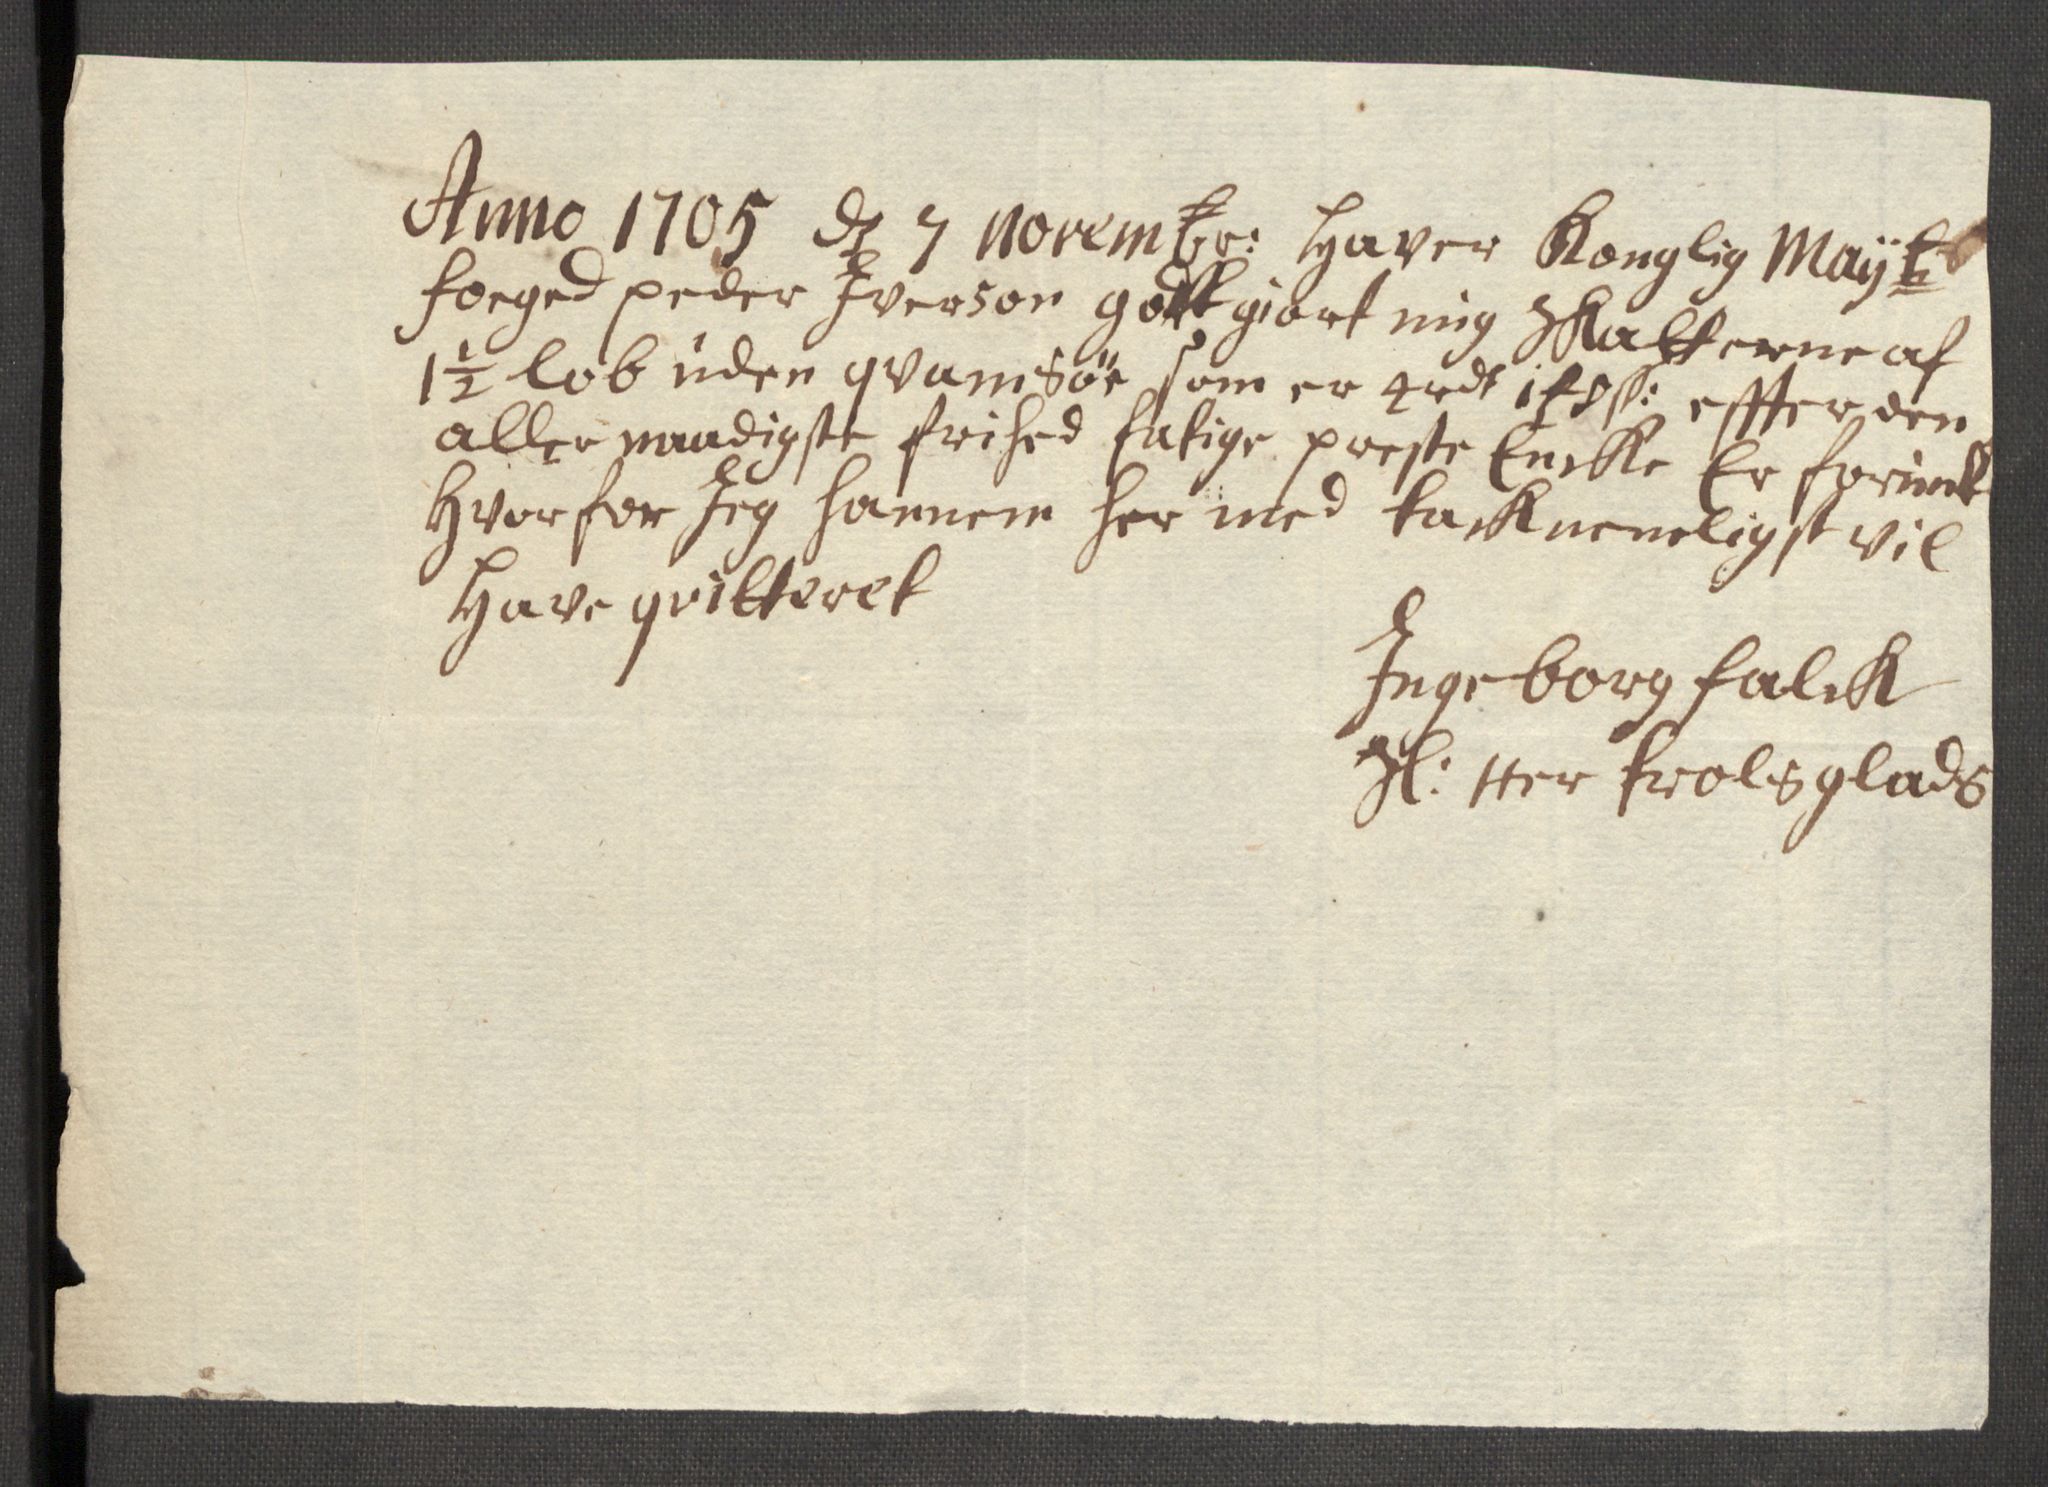 Anno 1705 d 7 november: Haver Konglig Mayts
foeged peder Iverson gottgiort mig Skatterne af
1½ lob uden qvamsöe som er 4 rdr effter den
aller naadigste frihed fatige preste Encke Er forundt
Hvor for Jeg hannem her med tackneneligst vil
Have qvitteret
Ingeborg falck
Sl: Her trols glads